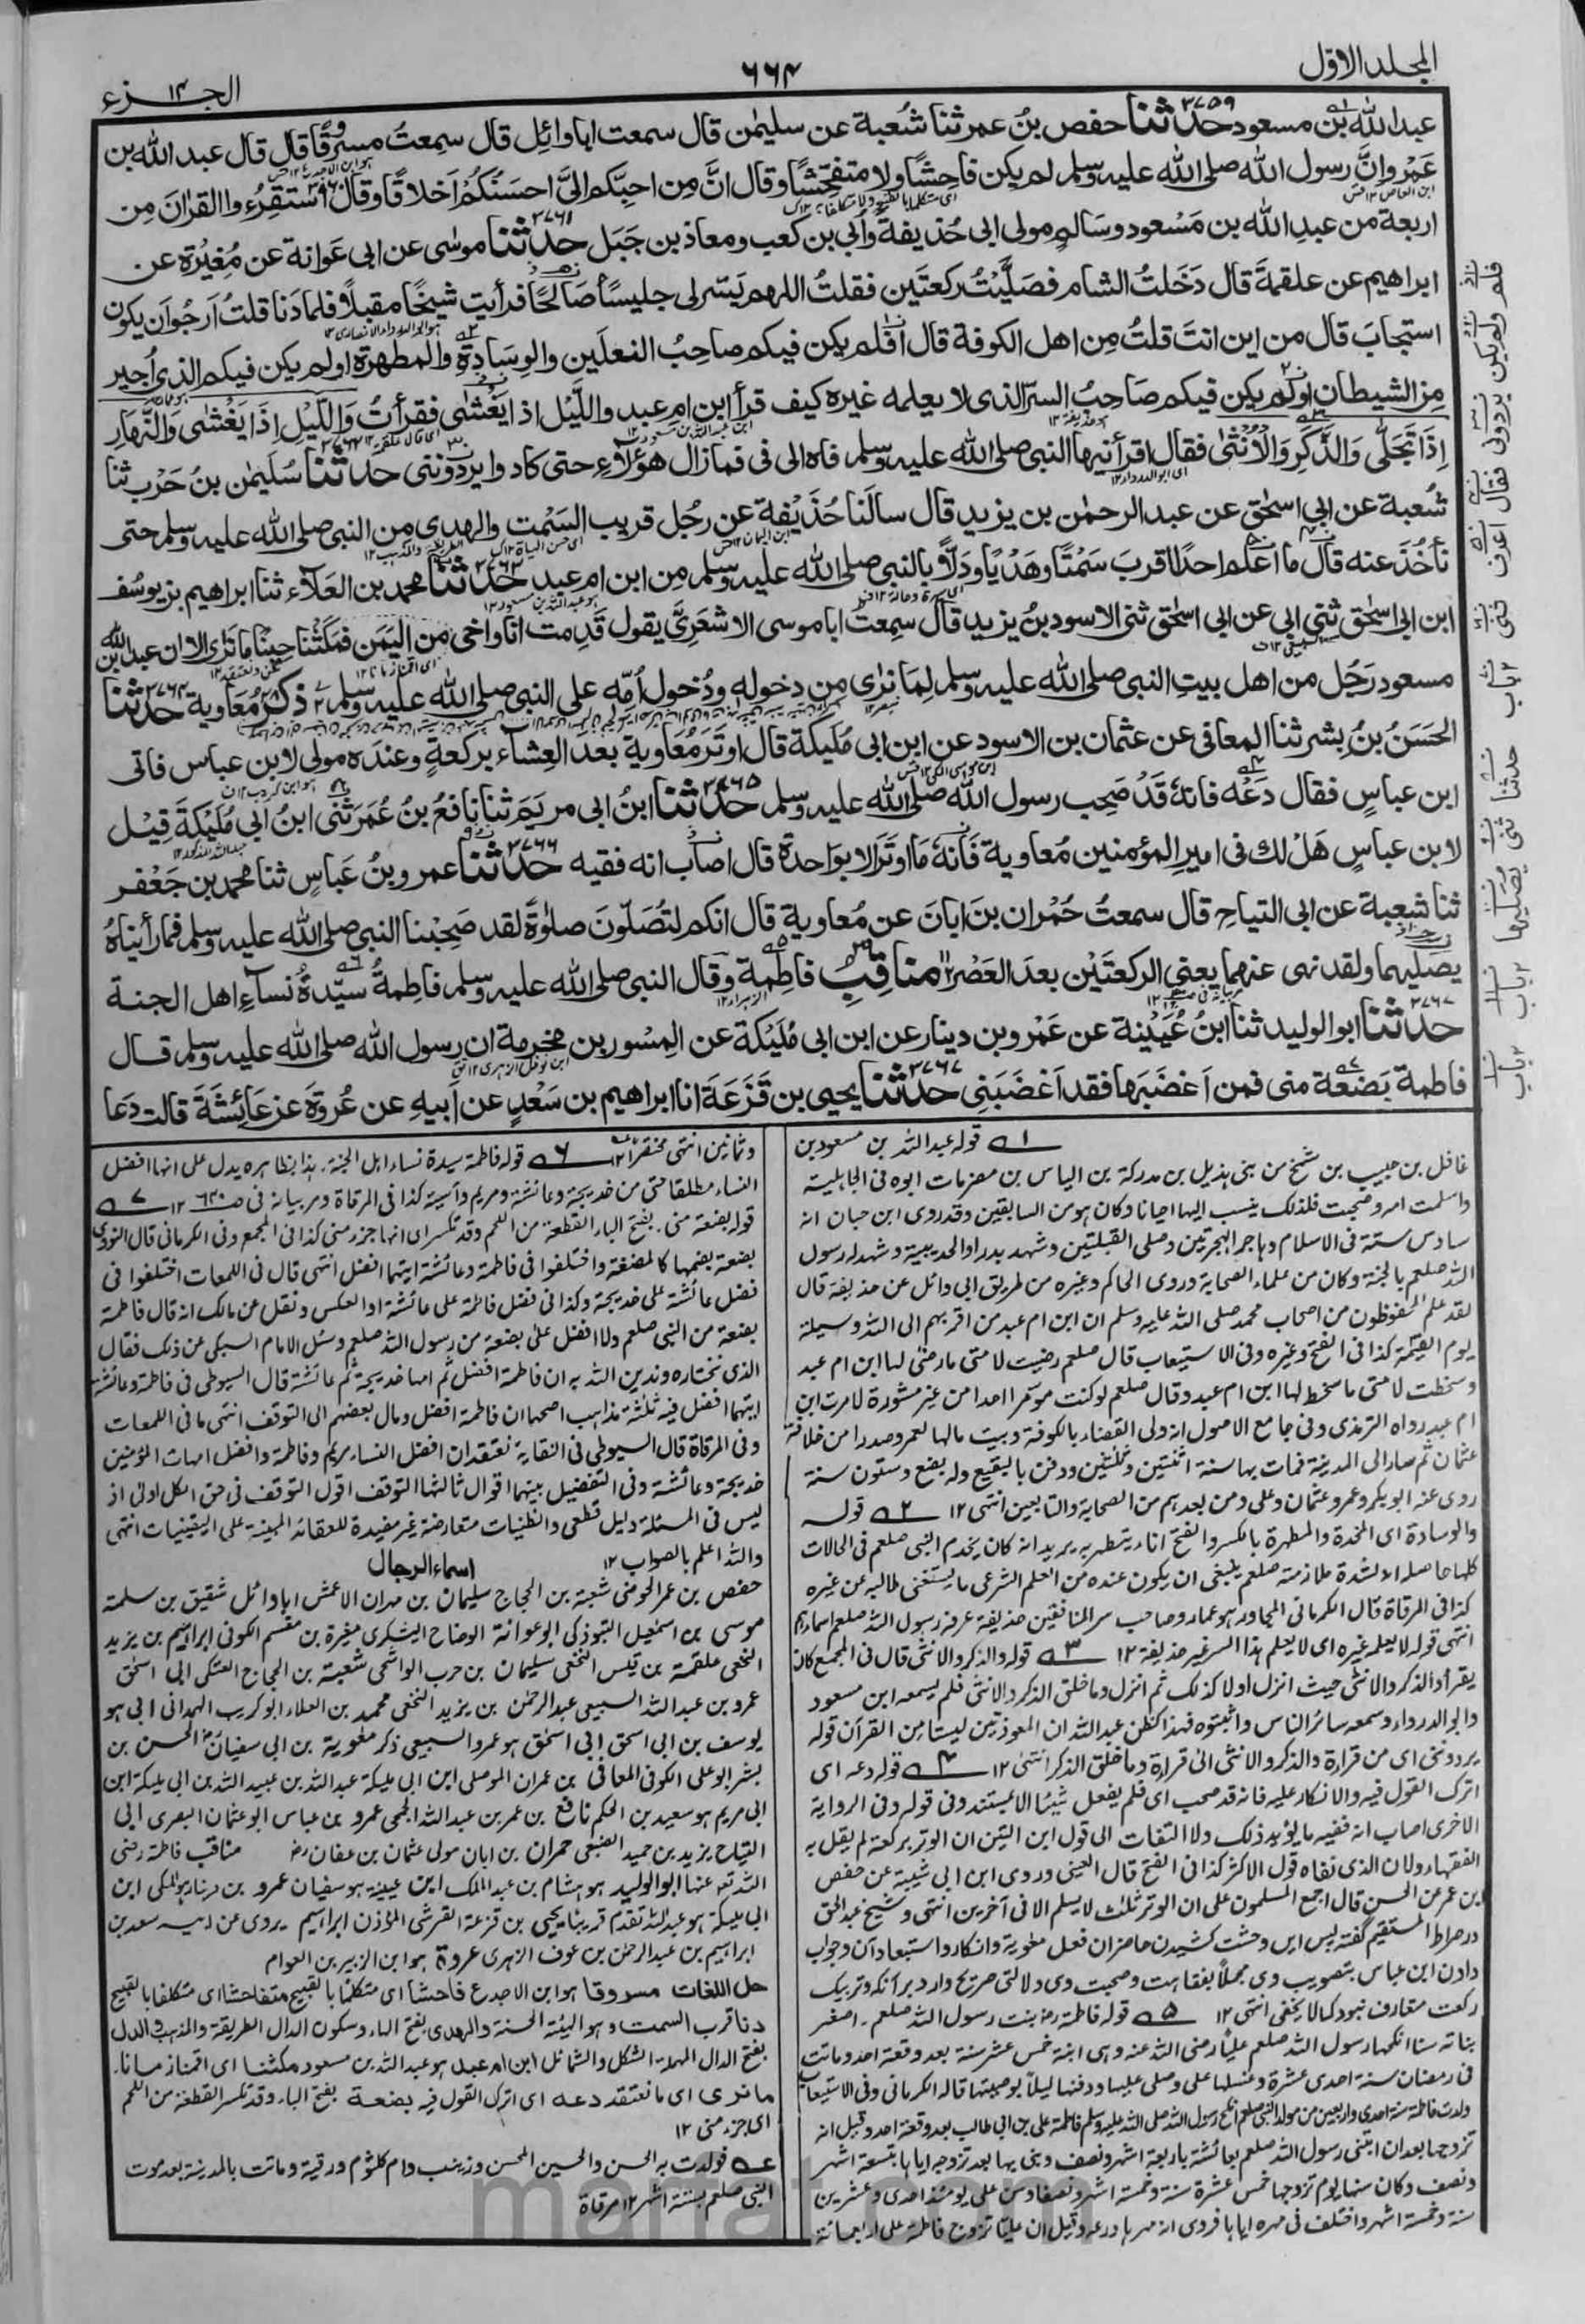 المجلد الاول
٦٦٤
الجزء ١٤
عبد الله بن مسعود حدثنا حفص بن عمر ثنا شعبة عن سليمٰن قال سمعت ابا وائل قال سمعت مسروقا قال قال عبد الله بن
عمرو ان رسول الله صلى الله عليه وسلم لم يكن فاحشا ولا متفحشا وقال ان من احبكم الىّ احسنكم اخلاقا وقال استقرءوا القران من
اربعة من عبد الله بن مسعود وسالم مولى ابى حذيفة وأبى بن كعب ومعاذ بن جبل حدثنا موسٰى عن ابى عوانة عن مغيرة عن
ابراهيم عن علقمة قال دخلت الشام فصليت ركعتين فقلت اللهم يسر لى جليسا صالحا فرأيت شيخا مقبلا فلما دنا قلت ارجو ان يكون
استجاب قال من اين انت قلت من اهل الكوفة قال افلم يكن فيكم صاحب النعلين والوسادة والمطهرة اولم يكن فيكم الذى أجير
من الشيطان اولم يكن فيكم صاحب السر الذى لا يعلمه غيره كيف قرأ ابن ام عبد والليل اذا يغشٰى فقرأت وَالَّيْلِ اِذَا يَغْشٰى وَالنَّهَارِ
اِذَا تَجَلّٰى وَالذَّكَرِ وَالْاُنْثٰى فقال اقرأنيها النبى صلى الله عليه وسلم فاه الى فى فما زال هؤلاء حتى كادوا يردوننى حدثنا سليمٰن بن حرب ثنا
شعبة عن ابى اسحٰق عن عبد الرحمٰن بن يزيد قال سالنا حذيفة عن رجل قريب السمت والهدى من النبى صلى الله عليه وسلم حتى
نأخذ عنه قال ما اعلم احدا اقرب سمتا وهديا ودلا بالنبى صلى الله عليه وسلم من ابن ام عبد حدثنا محمد بن العلاء ثنا ابراهيم بن يوسف
ابن ابى اسحٰق ثنى ابى عن ابى اسحٰق ثنى الاسود بن يزيد قال سمعت ابا موسى الاشعرى يقول قدمت انا واخى من اليمن فمكثنا حينا ما نرى الا ان عبد الله بن
مسعود رجل من اهل بيت النبى صلى الله عليه وسلم لما نرٰى من دخوله ودخول امه على النبى صلى الله عليه وسلم ذكر معاوية حدثنا
الحسن بن بشر ثنا المعافى عن عثمان بن الاسود عن ابن ابى مليكة قال اوتر معاوية بعد العشاء بركعة وعنده مولى لابن عباس فاتى
ابن عباس فقال دعه فانه قد صحب رسول الله صلى الله عليه وسلم حدثنا ابن ابى مريم ثنا نافع بن عمر ثنى ابن ابى مليكة قيل
لابن عباس هل لك فى امير المؤمنين معاوية فانه ما اوتر الا بواحدة قال اصاب انه فقيه حدثنا عمرو بن عباس ثنا محمد بن جعفر
ثنا شعبة عن ابى التياح قال سمعت حمران بن ابان عن معاوية قال انكم لتصلون صلوة لقد صحبنا النبى صلى الله عليه وسلم فما رأيناه
يصليهما ولقد نهى عنهما يعنى الركعتين بعد العصر مناقب فاطمة وقال النبى صلى الله عليه وسلم فاطمة سيدة نساء اهل الجنة
حدثنا ابو الوليد ثنا ابن عيينة عن عمرو بن دينار عن ابن ابى مليكة عن المسور بن مخرمة ان رسول الله صلى الله عليه وسلم قال
فاطمة بضعة منى فمن اغضبها فقد اغضبنى حدثنا يحيى بن قزعة انا ابراهيم بن سعد عن ابيه عن عروة عن عائشة قالت دعا
قوله عبد الله بن مسعود بن
غافل بن حبيب بن شمخ من بنى هذيل بن مدركة بن الياس بن مضر مات ابوه فى الجاهلية
واسلمت امه وصحبت فلذلك ينسب اليها احيانا وكان هو من السابقين وقد روى ابن حبان انه
سادس ستة فى الاسلام وهاجر الهجرتين وصلى القبلتين وشهد بدرا والحديبية وشهد له رسول
الله صلعم بالجنة وكان من علماء الصحابة وروى الحاكم وغيره من طريق ابى وائل عن حذيفة قال
لقد علم المحفوظون من اصحاب محمد صلى الله عليه وسلم ان ابن ام عبد من اقربهم الى الله وسيلة
يوم القيٰمة كذا فى الفتح وغيره وفى الاستيعاب قال صلعم رضيت لامتى ما رضى لها ابن ام عبد
وسخطت لامتى ما سخط لها ابن ام عبد وقال صلعم لو كنت مؤمرا احدا من غير مشورة لامرت ابن
ام عبد رواه الترمذى وفى جامع الاصول انه ولى القضاء بالكوفة وبيت مالها لعمر وصدرا من خلافة
عثمان ثم صار الى المدينة فمات بها سنة اثنتين وثلثين ودفن بالبقيع وله بضع وستون سنة
روى عنه ابو بكر وعمر وعثمان وعلى ومن بعدهم من الصحابة والتابعين انتهى ١٢ ٢ قوله
والوسادة اى المخدة والمطهرة بالكسر والفتح اناء يتطهر به يريد انه كان يخدم النبى صلعم فى الحالات
كلها حاصله انه لشدة ملازمته صلعم ينبغى ان يكون عنده من العلم الشرعى ما يستغنى طالبه عن غيره
كذا فى المرقاة قال الكرمانى المجاور هو عمار وصاحب سر المنافقين حذيفة عرفه رسول الله صلعم اسماءهم
انتهى قوله لا يعلمه غيره اى لا يعلم هذا السر غير حذيفة ١٢ ٣ قوله والذكر والانثى قال فى المجمع كان
يقرأ والذكر والانثى حيث انزل اولا كذلك ثم انزل وما خلق الذكر والانثى فلم يسمعه ابن مسعود
وابو الدرداء وسمعه سائر الناس واثبتوه فهذا كظن عبد الله ان المعوذتين ليستا من القرآن قوله
يردوننى اى من قراءة والذكر والانثى الى قراءة وما خلق الذكر انتهى ١٢ ٤ قوله دعه اى
اترك القول فيه والانكار عليه فانه قد صحب اى فلم يفعل شيئا الا بمستند وفى قوله وفى الرواية
الاخرى اصاب انه فقيه ما يؤيد ذلك ولا التفات الى قول ابن التين ان الوتر بركعة لم يقل به
الفقهاء ولان الذى نفاه قول الاكثر كذا فى الفتح قال العينى وروى ابن ابى شيبة عن حفص
بن عمر عن الحسن قال اجمع المسلمون على ان الوتر ثلث لا يسلم الا فى آخرين انتهى وشيخ عبد الحق
در صراط المستقيم گفته پس اين وحشت كشيدن حاضران فعل معٰوية وانكار واستبعاد آن وجواب
دادن ابن عباس بتصويب وى مجملاً بفقاهت وصحبت وى دلالتى صريح دارد بر آنكه وتر بيك
ركعت متعارف نبود كما لا يخفى انتهى ١٢ ٥ قوله فاطمة رض بنت رسول الله صلعم. اصغر
بناته سنا انكحها رسول الله صلعم عليا رضى الله عنه وهى ابنة خمس عشر سنة بعد وقعة احد وماتت
فى رمضان سنة احدى عشرة وغسلها على وصلى عليها ودفنها ليلاً بوصيتها قاله الكرمانى وفى الاستيعاب
ولدت فاطمة سنة احدى واربعين من مولد النبى صلعم انكح رسول الله صلى الله عليه وسلم فاطمة على بن ابى طالب بعد وقعة احد وقيل انه
تزوجها بعد ان ابتنى رسول الله صلعم بعائشة باربعة اشهر ونصف وبنى بها بعد تزوجه اياها بتسعة اشهر
ونصف وكان سنها يوم تزوجها خمس عشرة سنة وخمسة اشهر ونصفا وسن على يومئذ احدى وعشرين
سنة وخمسة اشهر واختلف فى مهره اياها فروى انه مهرها درعه وقيل ان عليا تزوج فاطمة على اربعمائة
وثمانين انتهى مختصرا ١٢ ٦ قوله فاطمة سيدة نساء اهل الجنة. هذا بظاهره يدل على انها افضل
النساء مطلقا حتى من خديجة وعائشة ومريم وآسية كذا فى المرقاة ومر بيانه فى ص ١٢ ٧
قوله بضعة منى. بفتح الباء القطعة من اللحم وقد تكسر اى انها جزء منى كذا فى المجمع وفى الكرمانى قال النووى
بضعة بضمها كالمضغة واختلفوا فى فاطمة وعائشة ايتهما افضل انتهى قال فى اللمعات اختلفوا فى
فضل عائشة على خديجة وكذا فى فضل فاطمة على عائشة او العكس ونقل عن مالك انه قال فاطمة
بضعة من النبى صلعم ولا افضل على بضعة من رسول الله صلعم وسئل الامام السبكى عن ذلك فقال
الذى نختاره وندين الله به ان فاطمة افضل ثم امها خديجة ثم عائشة قال السيوطى فى فاطمة وعائشة
ايتهما افضل فيه ثلثة مذاهب اصحها ان فاطمة افضل ومال بعضهم الى التوقف انتهى ما فى اللمعات
وفى المرقاة قال السيوطى فى النقاية نعتقد ان افضل النساء مريم وفاطمة وافضل امهات المؤمنين
خديجة وعائشة وفى التفضيل بينهما اقوال ثالثها التوقف اقول التوقف فى حق الكل اولى اذ
ليس فى المسئلة دليل قطعى والظنيات متعارضة غير مفيدة للعقائد المبنية على اليقينيات انتهى
والله اعلم بالصواب ١٢
اسماء الرجال
حفص بن عمر الحوضى شعبة بن الحجاج سليمان بن مهران الاعمش ابا وائل شقيق بن سلمة
موسى بن اسمٰعيل التبوذكى ابو عوانة الوضاح اليشكرى مغيرة بن مقسم الكوفى ابراهيم بن يزيد
النخعى علقمة بن قيس النخعى سليمان بن حرب الواشحى شعبة بن الحجاج العتكى ابى اسحٰق
عمرو بن عبد الله السبيعى عبد الرحمٰن بن يزيد النخعى محمد بن العلاء ابو كريب الهمدانى ابى هو
يوسف بن ابى اسحق ابى اسحٰق هو عمرو السبيعى ذكر معٰوية بن ابى سفيان رض الحسن بن
بشر ابو على الكوفى المعافى بن عمران الموصلى ابن ابى مليكة عبد الله بن عبيد الله بن ابى مليكة ابن
ابى مريم هو سعيد بن الحكم نافع بن عمر بن عبد الله الجمحى عمرو بن عباس ابو عثمان البصرى ابى
التياح يزيد بن حميد الضبعى حمران بن ابان مولى عثمان بن عفان رض مناقب فاطمة رضى
الله تع عنها ابو الوليد هو هشام بن عبد الملك ابن عيينة هو سفيان عمرو بن دينار هو المكى ابن
ابى مليكة هو عبد الله تقدم قريبا يحيى بن قزعة القرشى المؤذن ابراهيم يروى عن ابيه سعد بن
ابراهيم بن عبد الرحمٰن بن عوف الزهرى عروة هو ابن الزبير بن العوام
حل اللغات مسروقا هو ابن الاجدع فاحشا اى متكلما بالقبيح متفاحشا اى متكلفا بالقبيح
دنا قرب السمت هو الهيئة الحسنة والهدى بفتح الهاء وسكون الدال الطريقة والمذهب والدل
بفتح الدال المهملة الشكل والشمائل ابن ام عبد هو عبد الله بن مسعود مكثنا اى اقمنا زمانا.
ما نرى اى ما نعتقد دعه اى اترك القول فيه بضعة بفتح الباء وقد تكسر القطعة من اللحم
اى جزء منى ١٢
عه فولدت به الحسن والحسين المحسن وزينب وام كلثوم ورقية وماتت بالمدينة بعد موت
النبى صلعم بستة اشهر ١٢ مرقاة